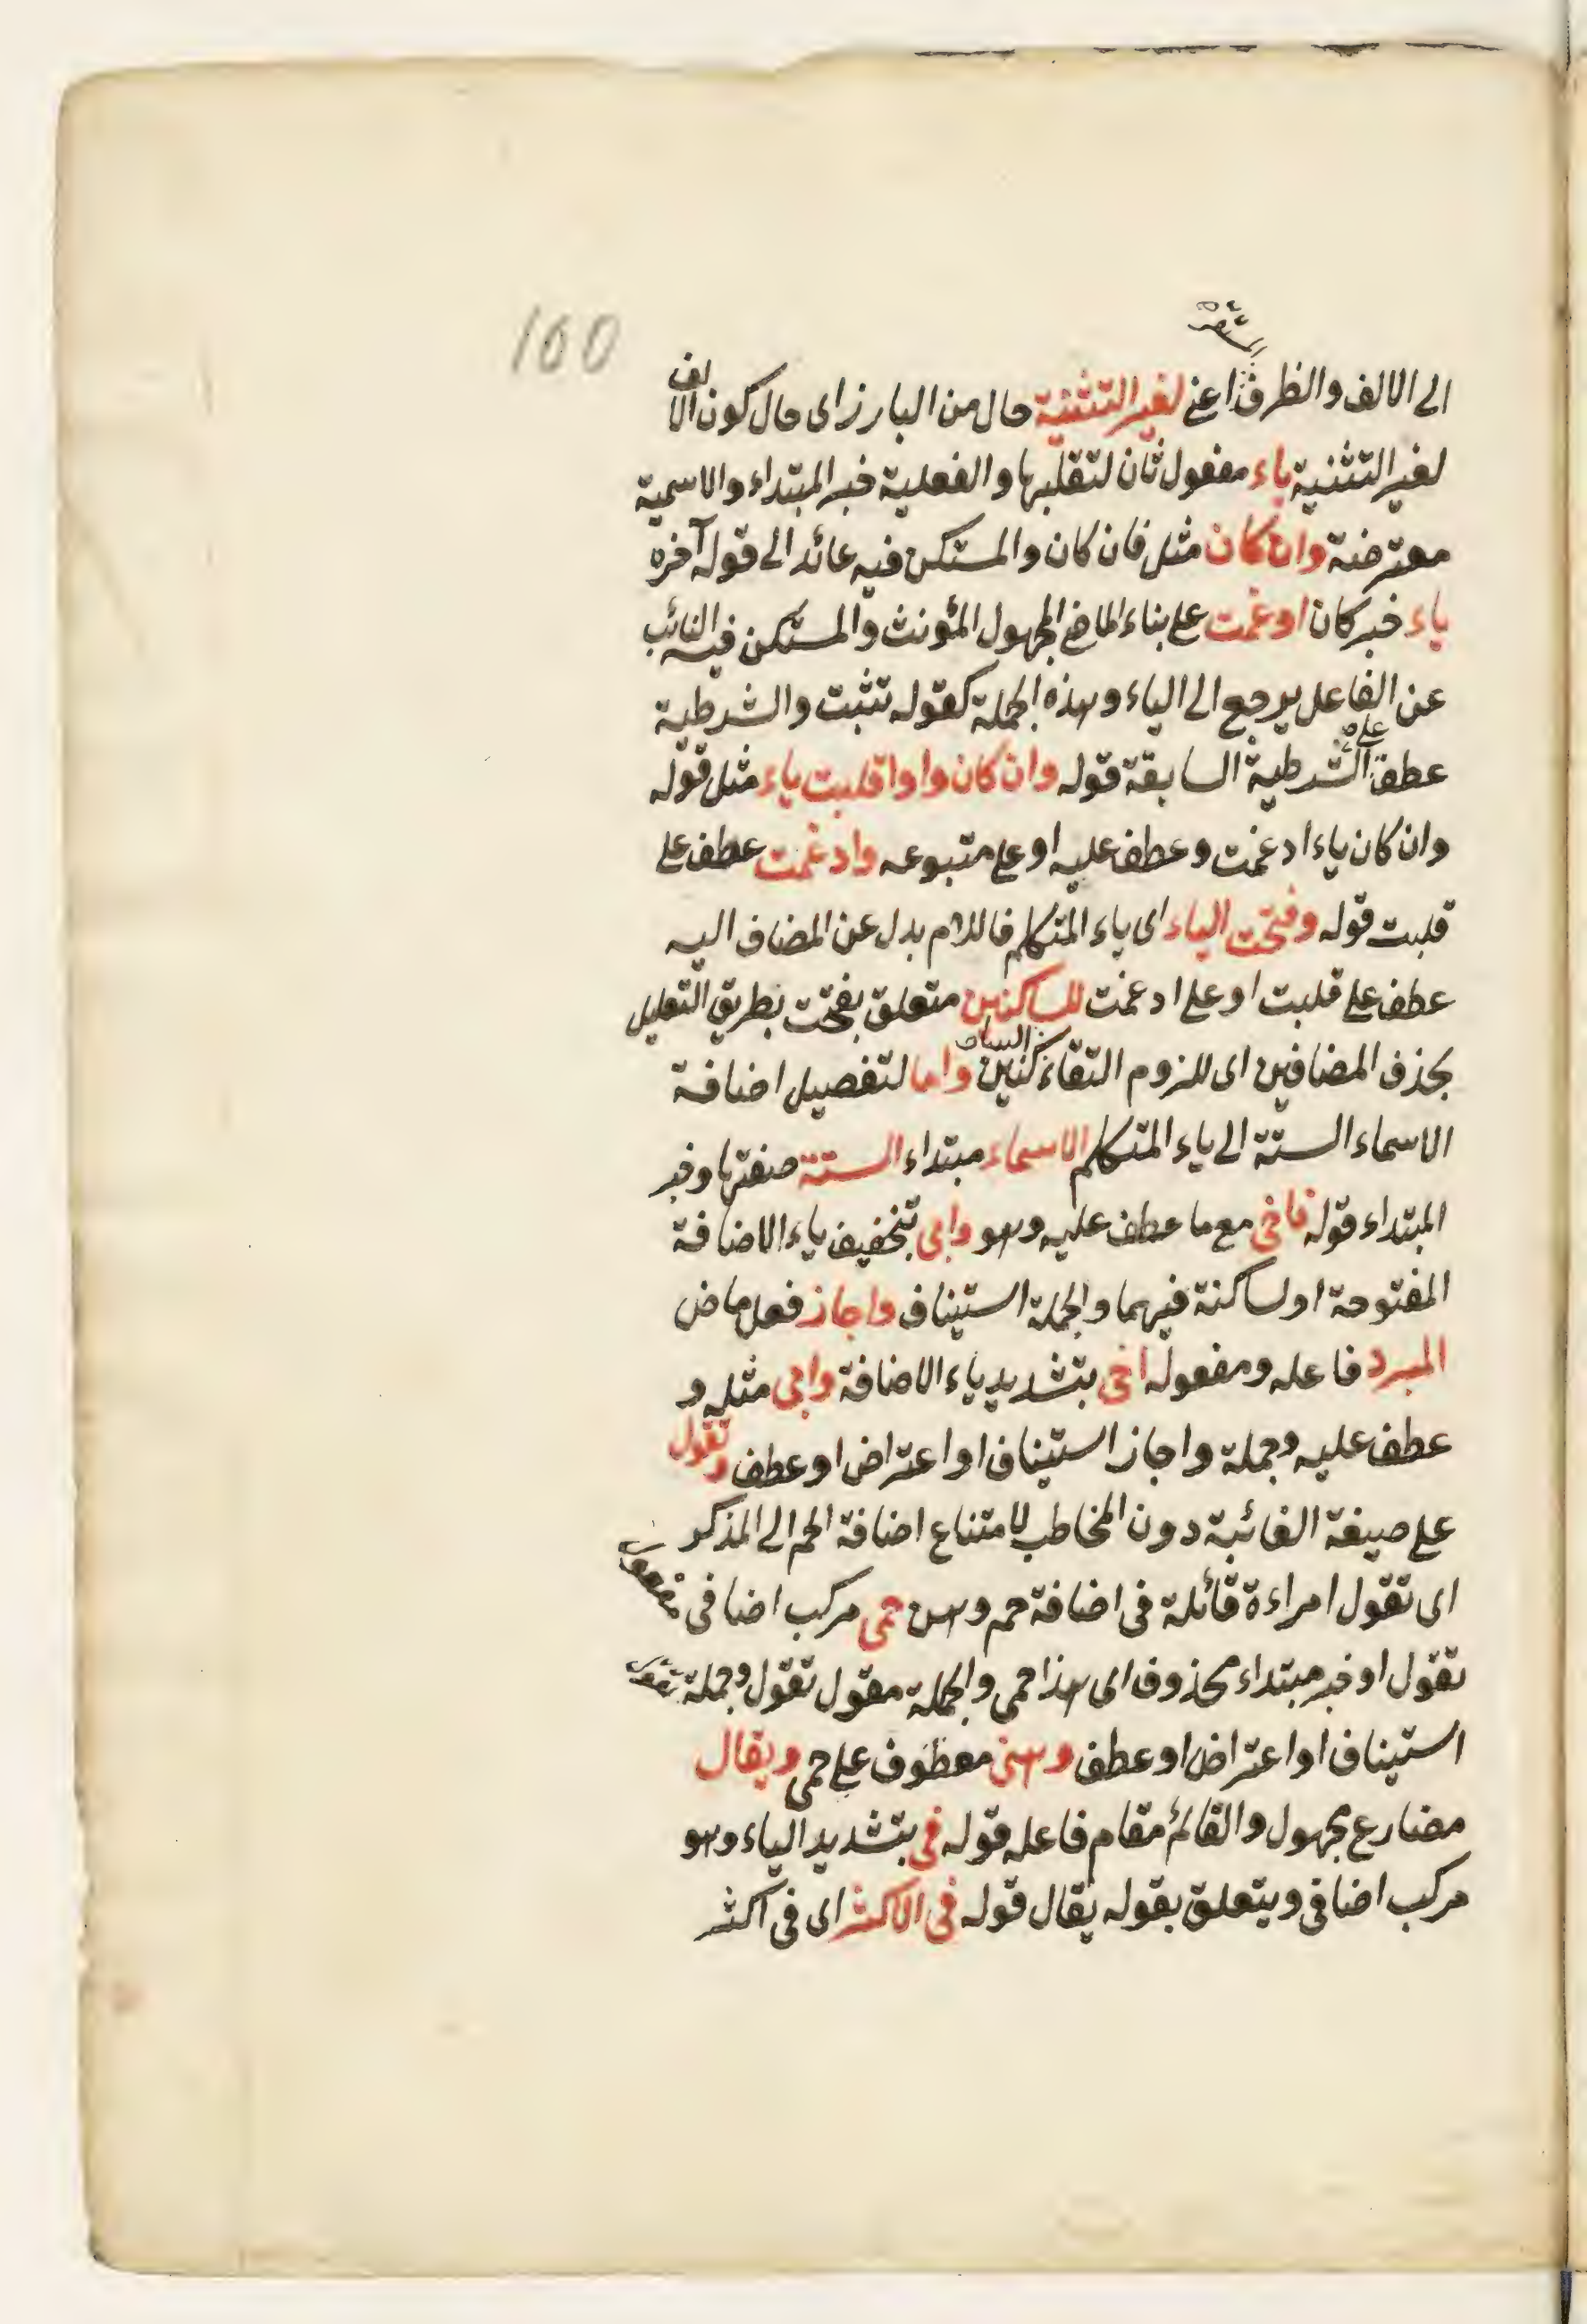 160
الى الالف والظرف اعنى لغير التثنية حال من البارز اى حال كون الالف
لغير التثنية ياء مفعول ثان لتقلبها والفعلية خبر المبتداء والاسمية
معترضة وان كان مثل فان كان والمستكن فيه عائد الى قوله آخره
ياء خبر كان ادغمت على بناء الماضى المجهول المؤنث والمستكن فيه النائب
عن الفاعل يرجع الى الياء وهذه الجملة كقوله تثبت والشرطية
عطف على الشرطية السابقة قوله وان كان واوا قلبت ياء مثل قوله
وان كان ياء ادغمت وعطف عليه او على متبوعه وادغمت عطف على
قلبت قوله وفتحت الياء اى ياء المتكلم فاللام بدل عن المضاف اليه
عطف على قلبت او على ادغمت للساكنين متعلق بفتحت بطريق التعليل
بحذف المضافين اى للزوم التقاء الساكنين واما لتفصيل اضافة
الاسماء الستة الى ياء المتكلم الاسماء مبتداء الستة صفتها وخبر
المبتداء قوله فاخى مع ما عطف عليه وهو وابى بتخفيف ياء الاضافة
المفتوحة او لساكنة فيهما والجملة استيناف واجاز فعل ماض
المبرد فاعله ومفعوله اخى بتشديد ياء الاضافة وابى مثله و
عطف عليه وجملة واجاز استيناف او اعتراض او عطف وتقول
على صيغة الغائبة دون المخاطب لامتناع اضافة الحم الى المذكر
اى تقول امراءة قائلة فى اضافة حم وهن حمى مركب اضافى مفعول
تقول او خبر مبتداء محذوف اى هذا حمى والجملة مقول تقول وجملة تقول
استيناف او اعتراض او عطف وهنى معطوف على حمى ويقال
مضارع مجهول والقائم مقام فاعله قوله فى بتشديد الياء وهو
مركب اضافى ويتعلق بقوله يقال قوله فى الاكثر اى فى اكثر